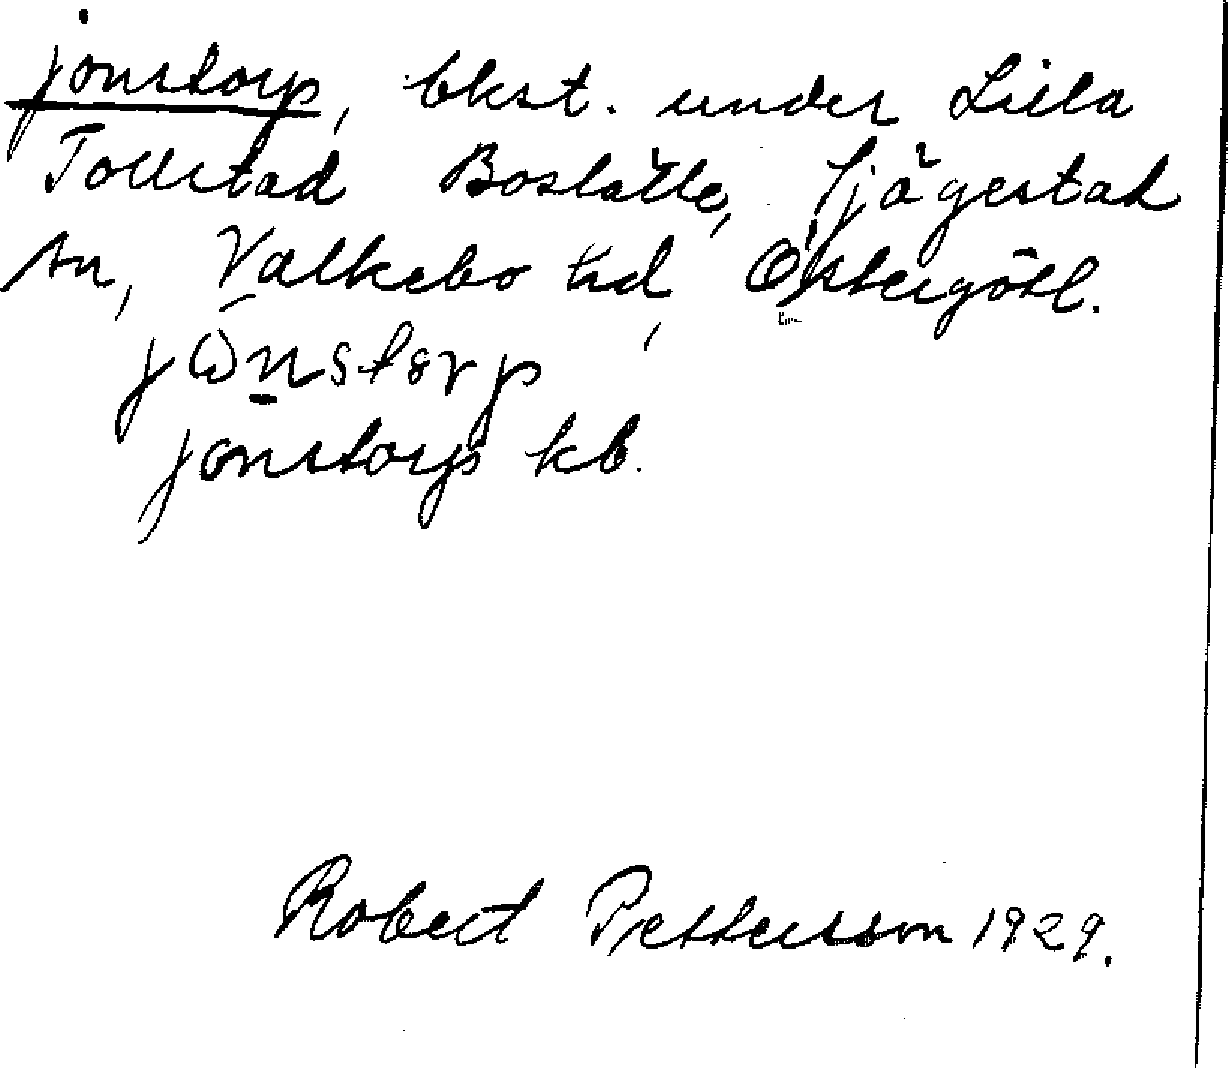 Jonstorp, bkst. under Lilla
Tollstad Boställe, Sjögestad
sn, Valkebo hd, Östergötl.
jωnstorp
Jonstorp kb.
Robert Pettersson 1929.